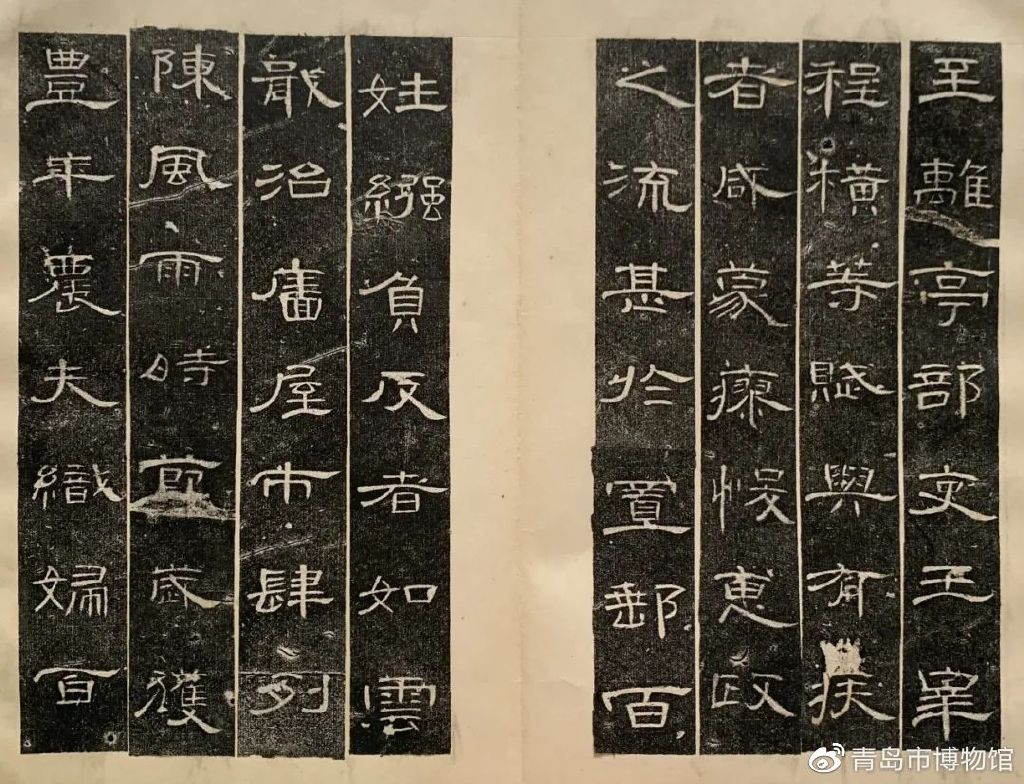 至離亭部吏王皋
程橫等賦與有疾
者咸蒙瘳悛惠政
之流甚於置郵百
姓繦負反者如雲
戢治廧屋市肆列
陳風雨時節歲獲
豐年農夫織婦百
青岛市博物馆